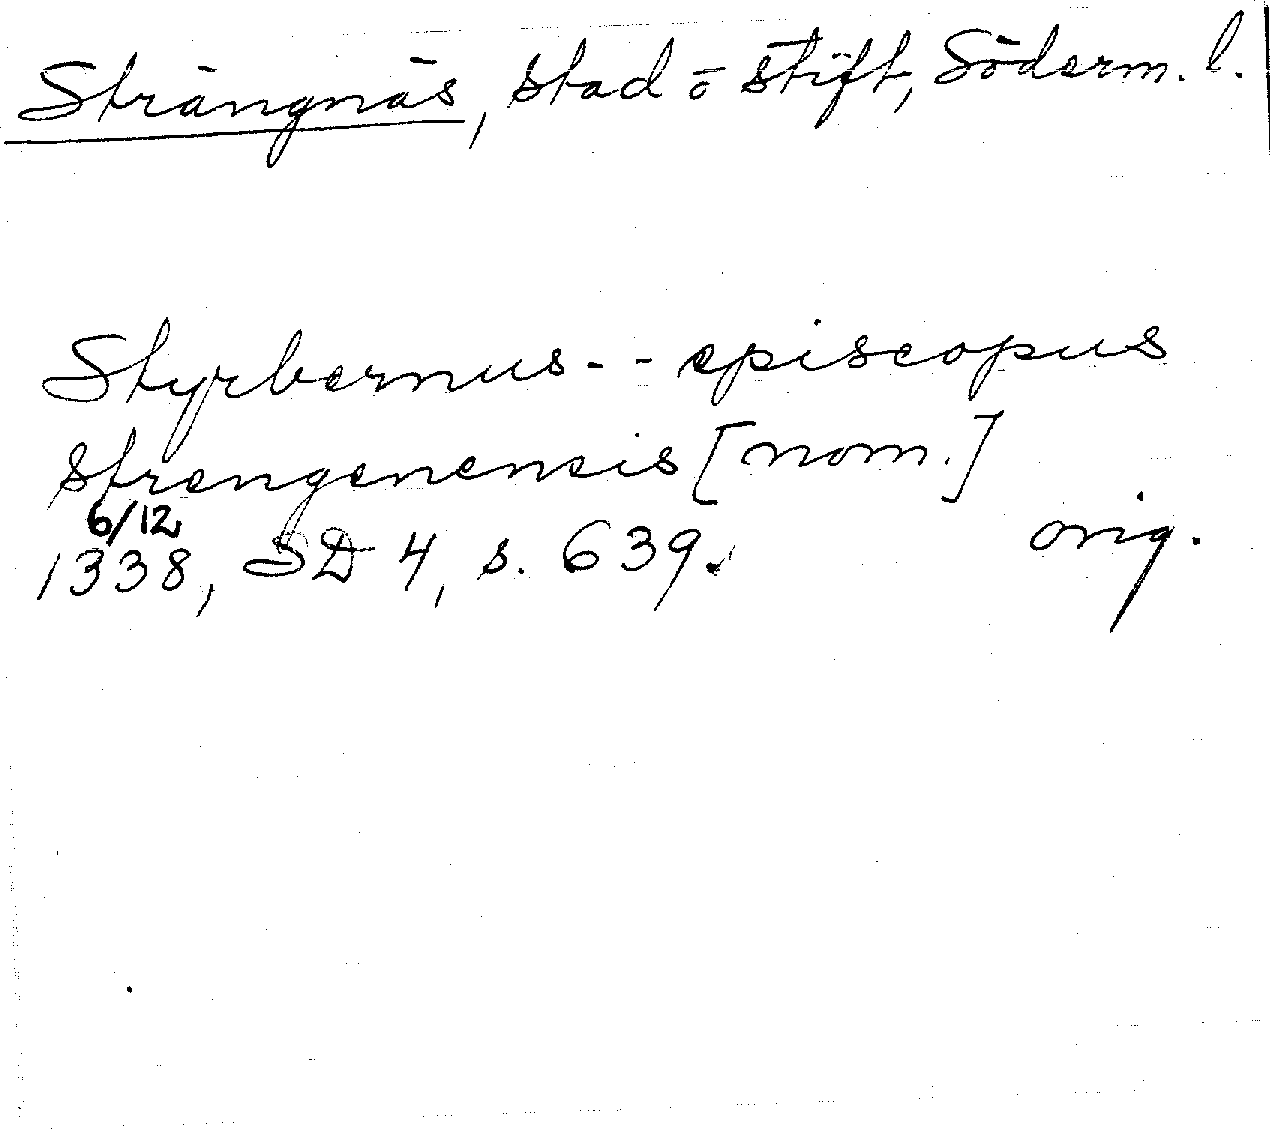 Strängnäs, stad o stift, Söderm. l.
Styrbernus - - episcopus
strengenensis [nom.]
6/12
1338, SD 4, s. 639. orig.